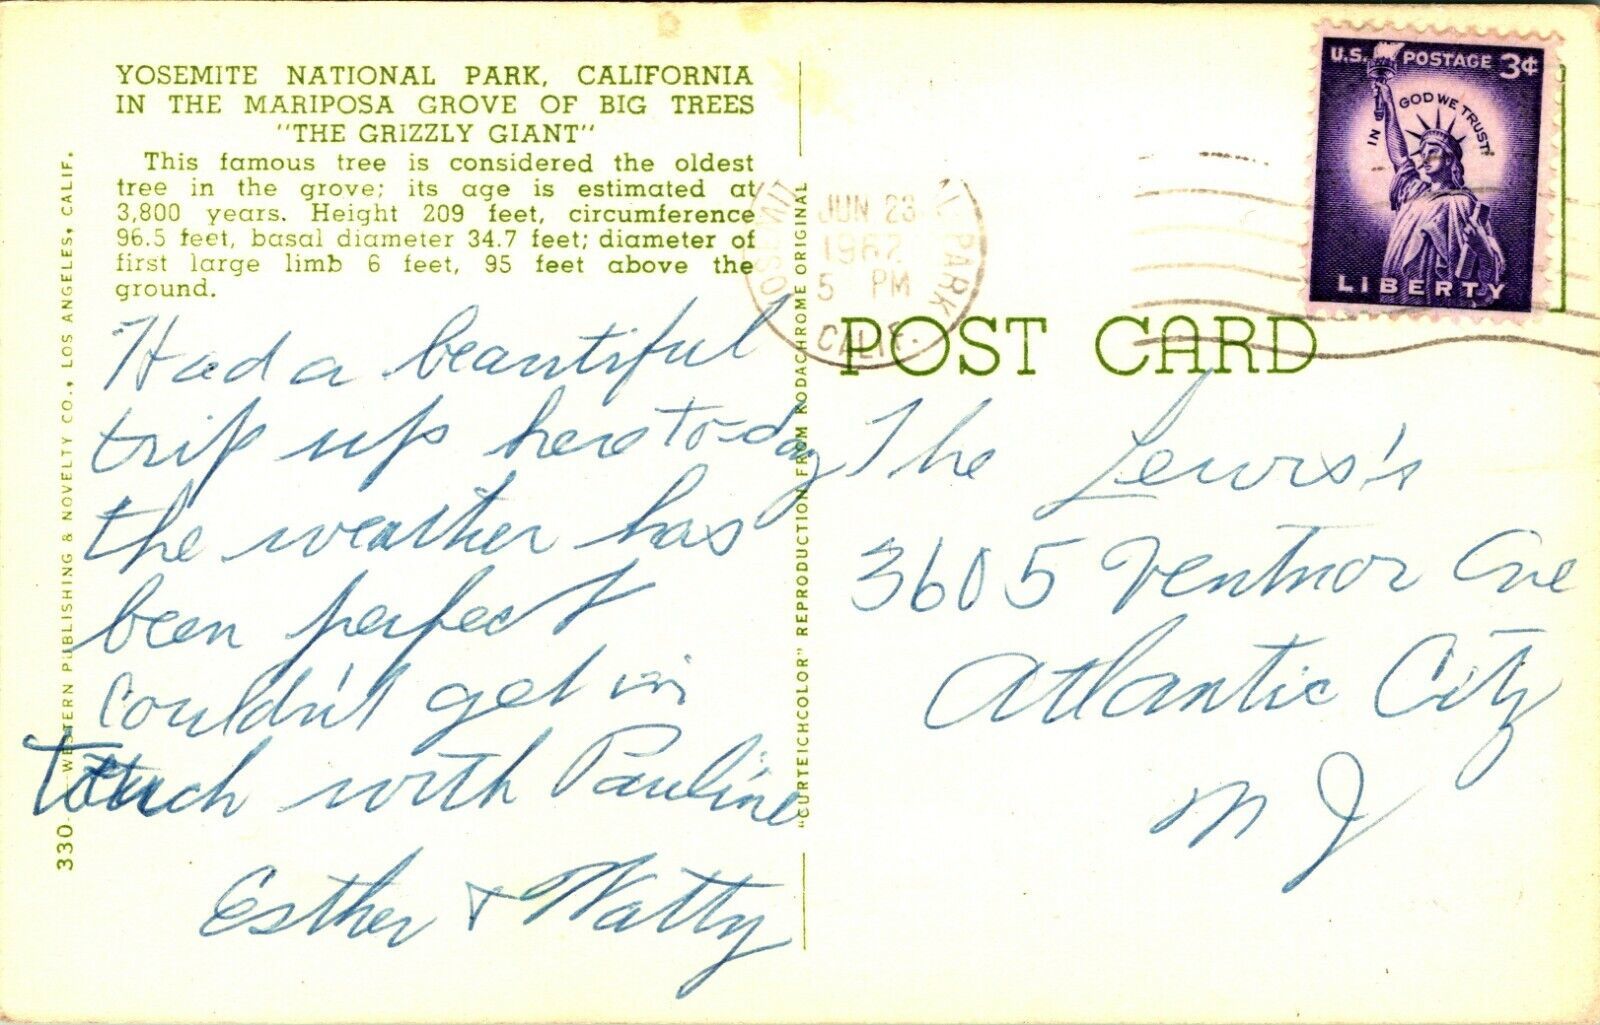 YOSEMITE NATIONAL PARK, CALIFORNIA
IN THE MARIPOSA GROVE OF BIG TREES
"THE GRIZZLY GIANT"
This famous tree is considered the oldest
tree in the grove; its age is estimated at
3,800 years. Height 209 feet, circumference
96.5 feet, basal diameter 34.7 feet; diameter of
first large limb 6 feet, 95 feet above the
ground.
Had a beautiful
trip up here to-day
the weather has
been perfect
Couldn't get in
Touch with Pauline
Esther & Watty
330-WESTERN PUBLISHING & NOVELTY CO., LOS ANGELES, CALIF.
"CURTEICHCOLOR" REPRODUCTION FROM KODACHROME ORIGINAL
JUN 23
1962
5 PM
PARK
CALIF.
U.S. POSTAGE 3¢
IN GOD WE TRUST
LIBERTY
POST CARD
The Lewis's
3605 Ventnor Ave
Atlantic City
N J